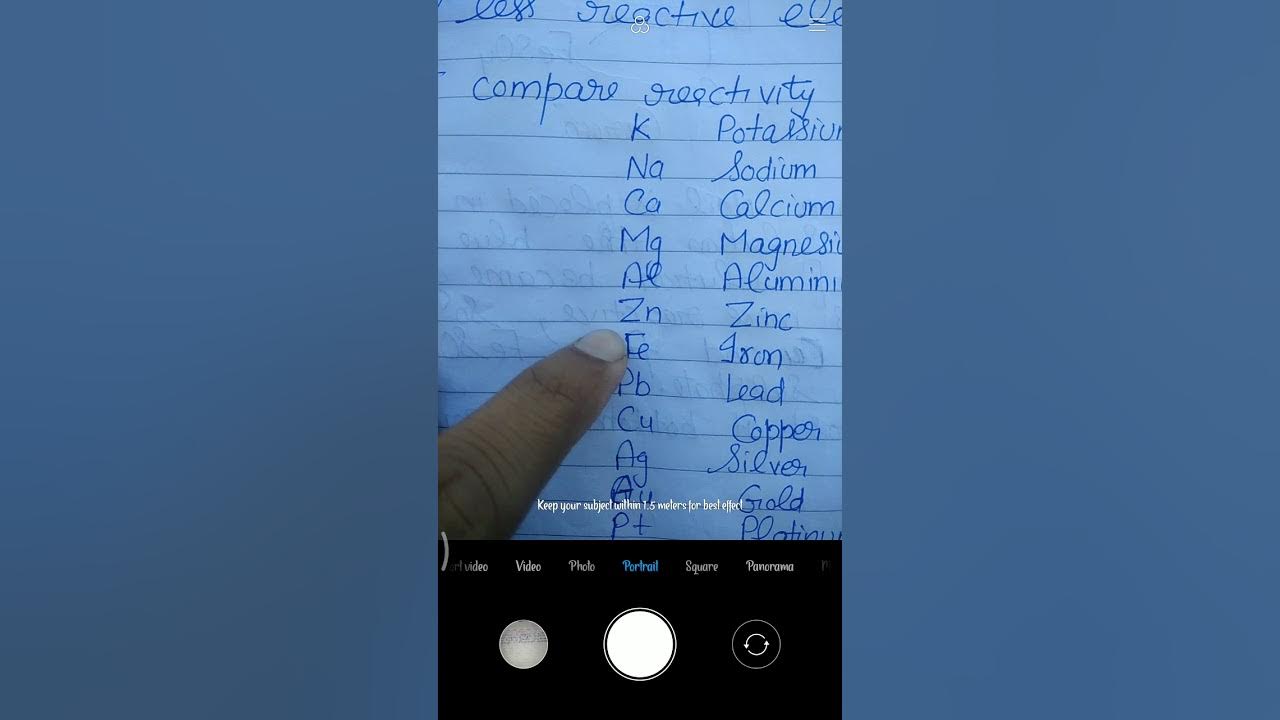 less reactive ele
compare reactivity
K Potassium
Na Sodium
Ca Calcium
Mg Magnesiu
Al Alumini
Zn Zinc
Fe Iron
Pb Lead
Cu Copper
Ag Silver
Au Gold
Keep your subject within 1.5 meters for best effect
Pt Platinu
ort video Video Photo Portrait Square Panorama